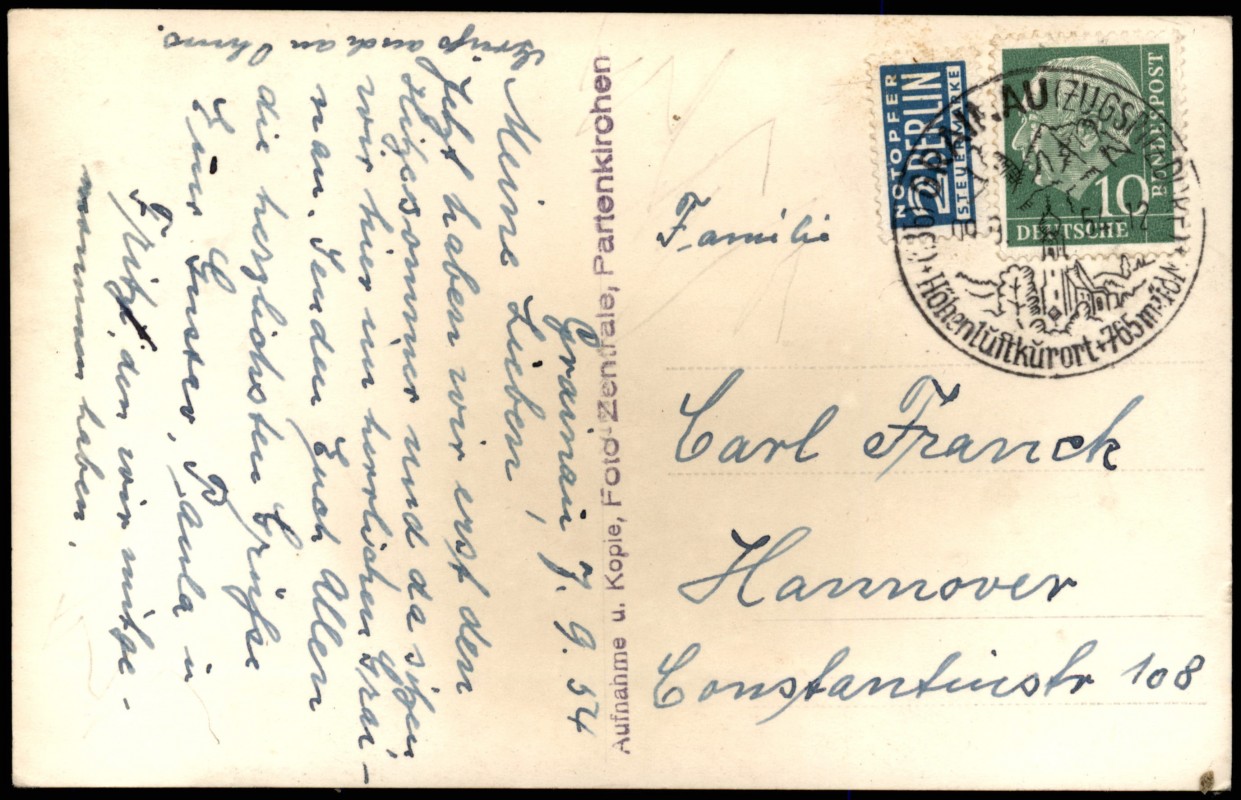 Grainau, 7. 9. 54
Meine Lieben,
Jetzt haben wir erst den
Hitzesommer und da sitzen
wir hier im herrlichen Grai-
nau. Senden Euch Allen
die herzlichsten Grüße
Eure Gustav, Paula u
Fritz, den wir mitge-
nommen haben.
Gruß auch an Oma.
Aufnahme u. Kopie, Foto-Zentrale, Partenkirchen
NOTOPFER
2 BERLIN
STEUERMARKE
DEUTSCHE
BUNDESPOST
10
GRAINAU (ZUGSPITZDORF)
54-12
Höhenluftkurort + 765 m
Familie
Carl Franck
Hannover
Constantinstr 108